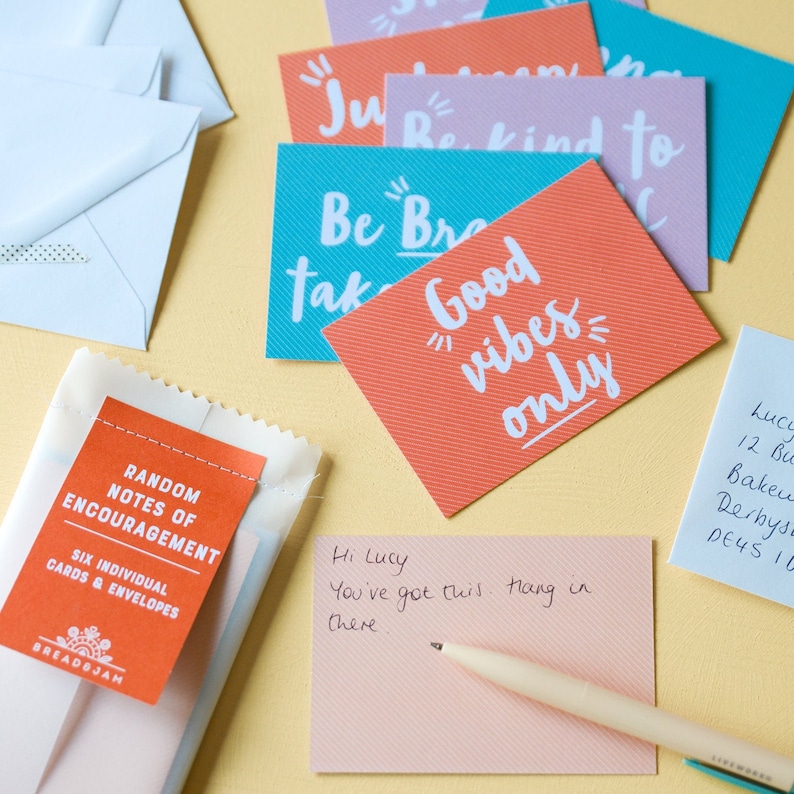 Be kind to
Be
take
Good
vibes
only
RANDOM
NOTES OF
ENCOURAGEMENT
SIX INDIVIDUAL
CARDS & ENVELOPES
BREAD&JAM
Hi Lucy
You've got this. Hang in
there.
Lucy
12
Derbys
DE45 1
LIVEWORK